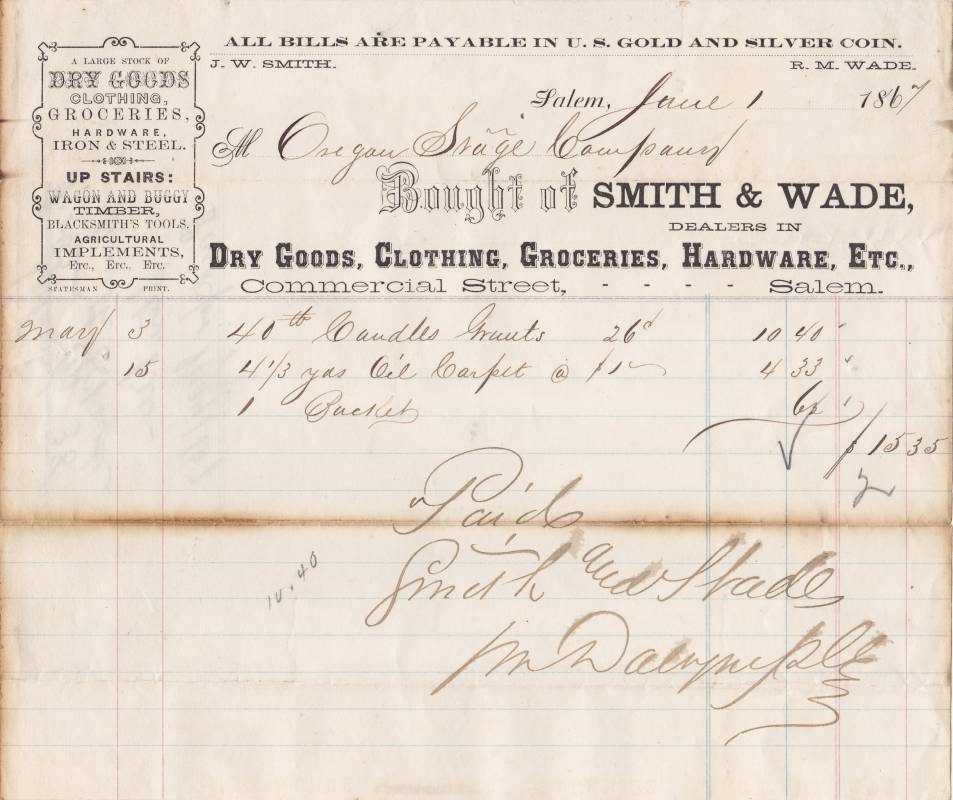 ALL BILLS ARE PAYABLE IN U. S. GOLD AND SILVER COIN.
J. W. SMITH. R. M. WADE.
A LARGE STOCK OF
DRY GOODS
CLOTHING,
GROCERIES,
HARDWARE,
IRON & STEEL.
UP STAIRS:
WAGON AND BUGGY
TIMBER,
BLACKSMITH'S TOOLS,
AGRICULTURAL
IMPLEMENTS,
ETC., ETC., ETC.
STATESMAN PRINT.
Salem, June 1 1867
M Oregon Stage Company
Bought of SMITH & WADE,
DEALERS IN
DRY GOODS, CLOTHING, GROCERIES, HARDWARE, ETC.,
Commercial Street, - - - - Salem.
May 3 40 lb Candles Grants 26 10 40
15 4 1/3 yds Oil Carpet @ $1 4 33
1 Bucket 62
$15 35
Paid
10.40
Smith and Wade
Dalrymple